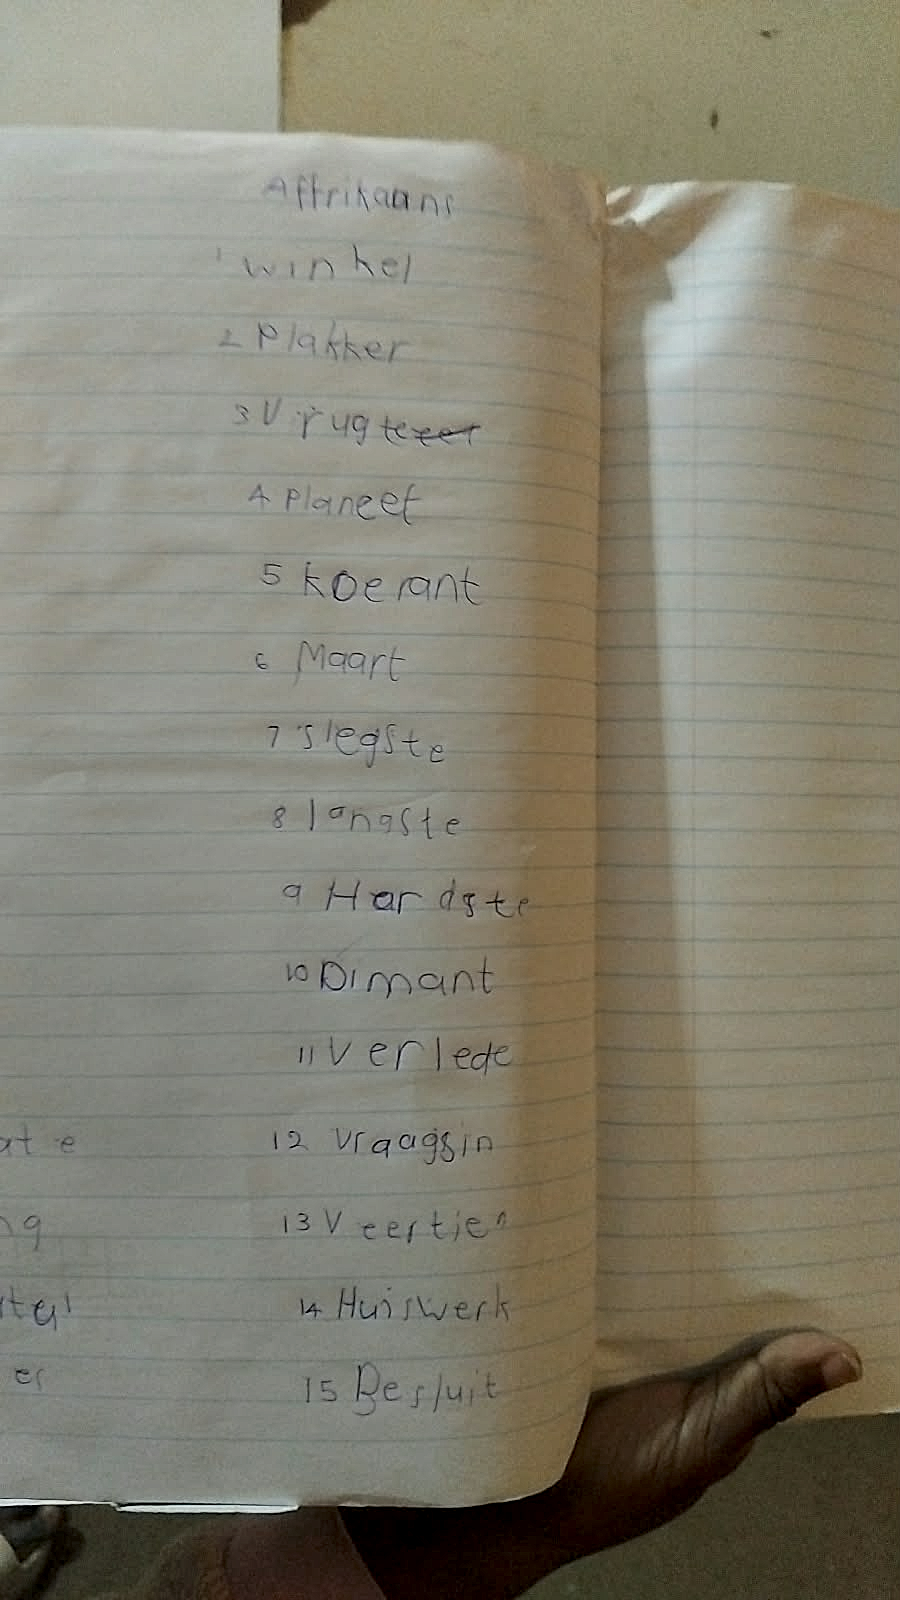 Affrikaans
1 winkel
2 Plakker
3 Vrugte
4 Planeet
5 koerant
6 Maart
7 slegste
8 langste
9 Hardste
10 Dimant
11 Verlede
12 Vraagsin
13 Veertien
14 Huiswerk
15 Besluit